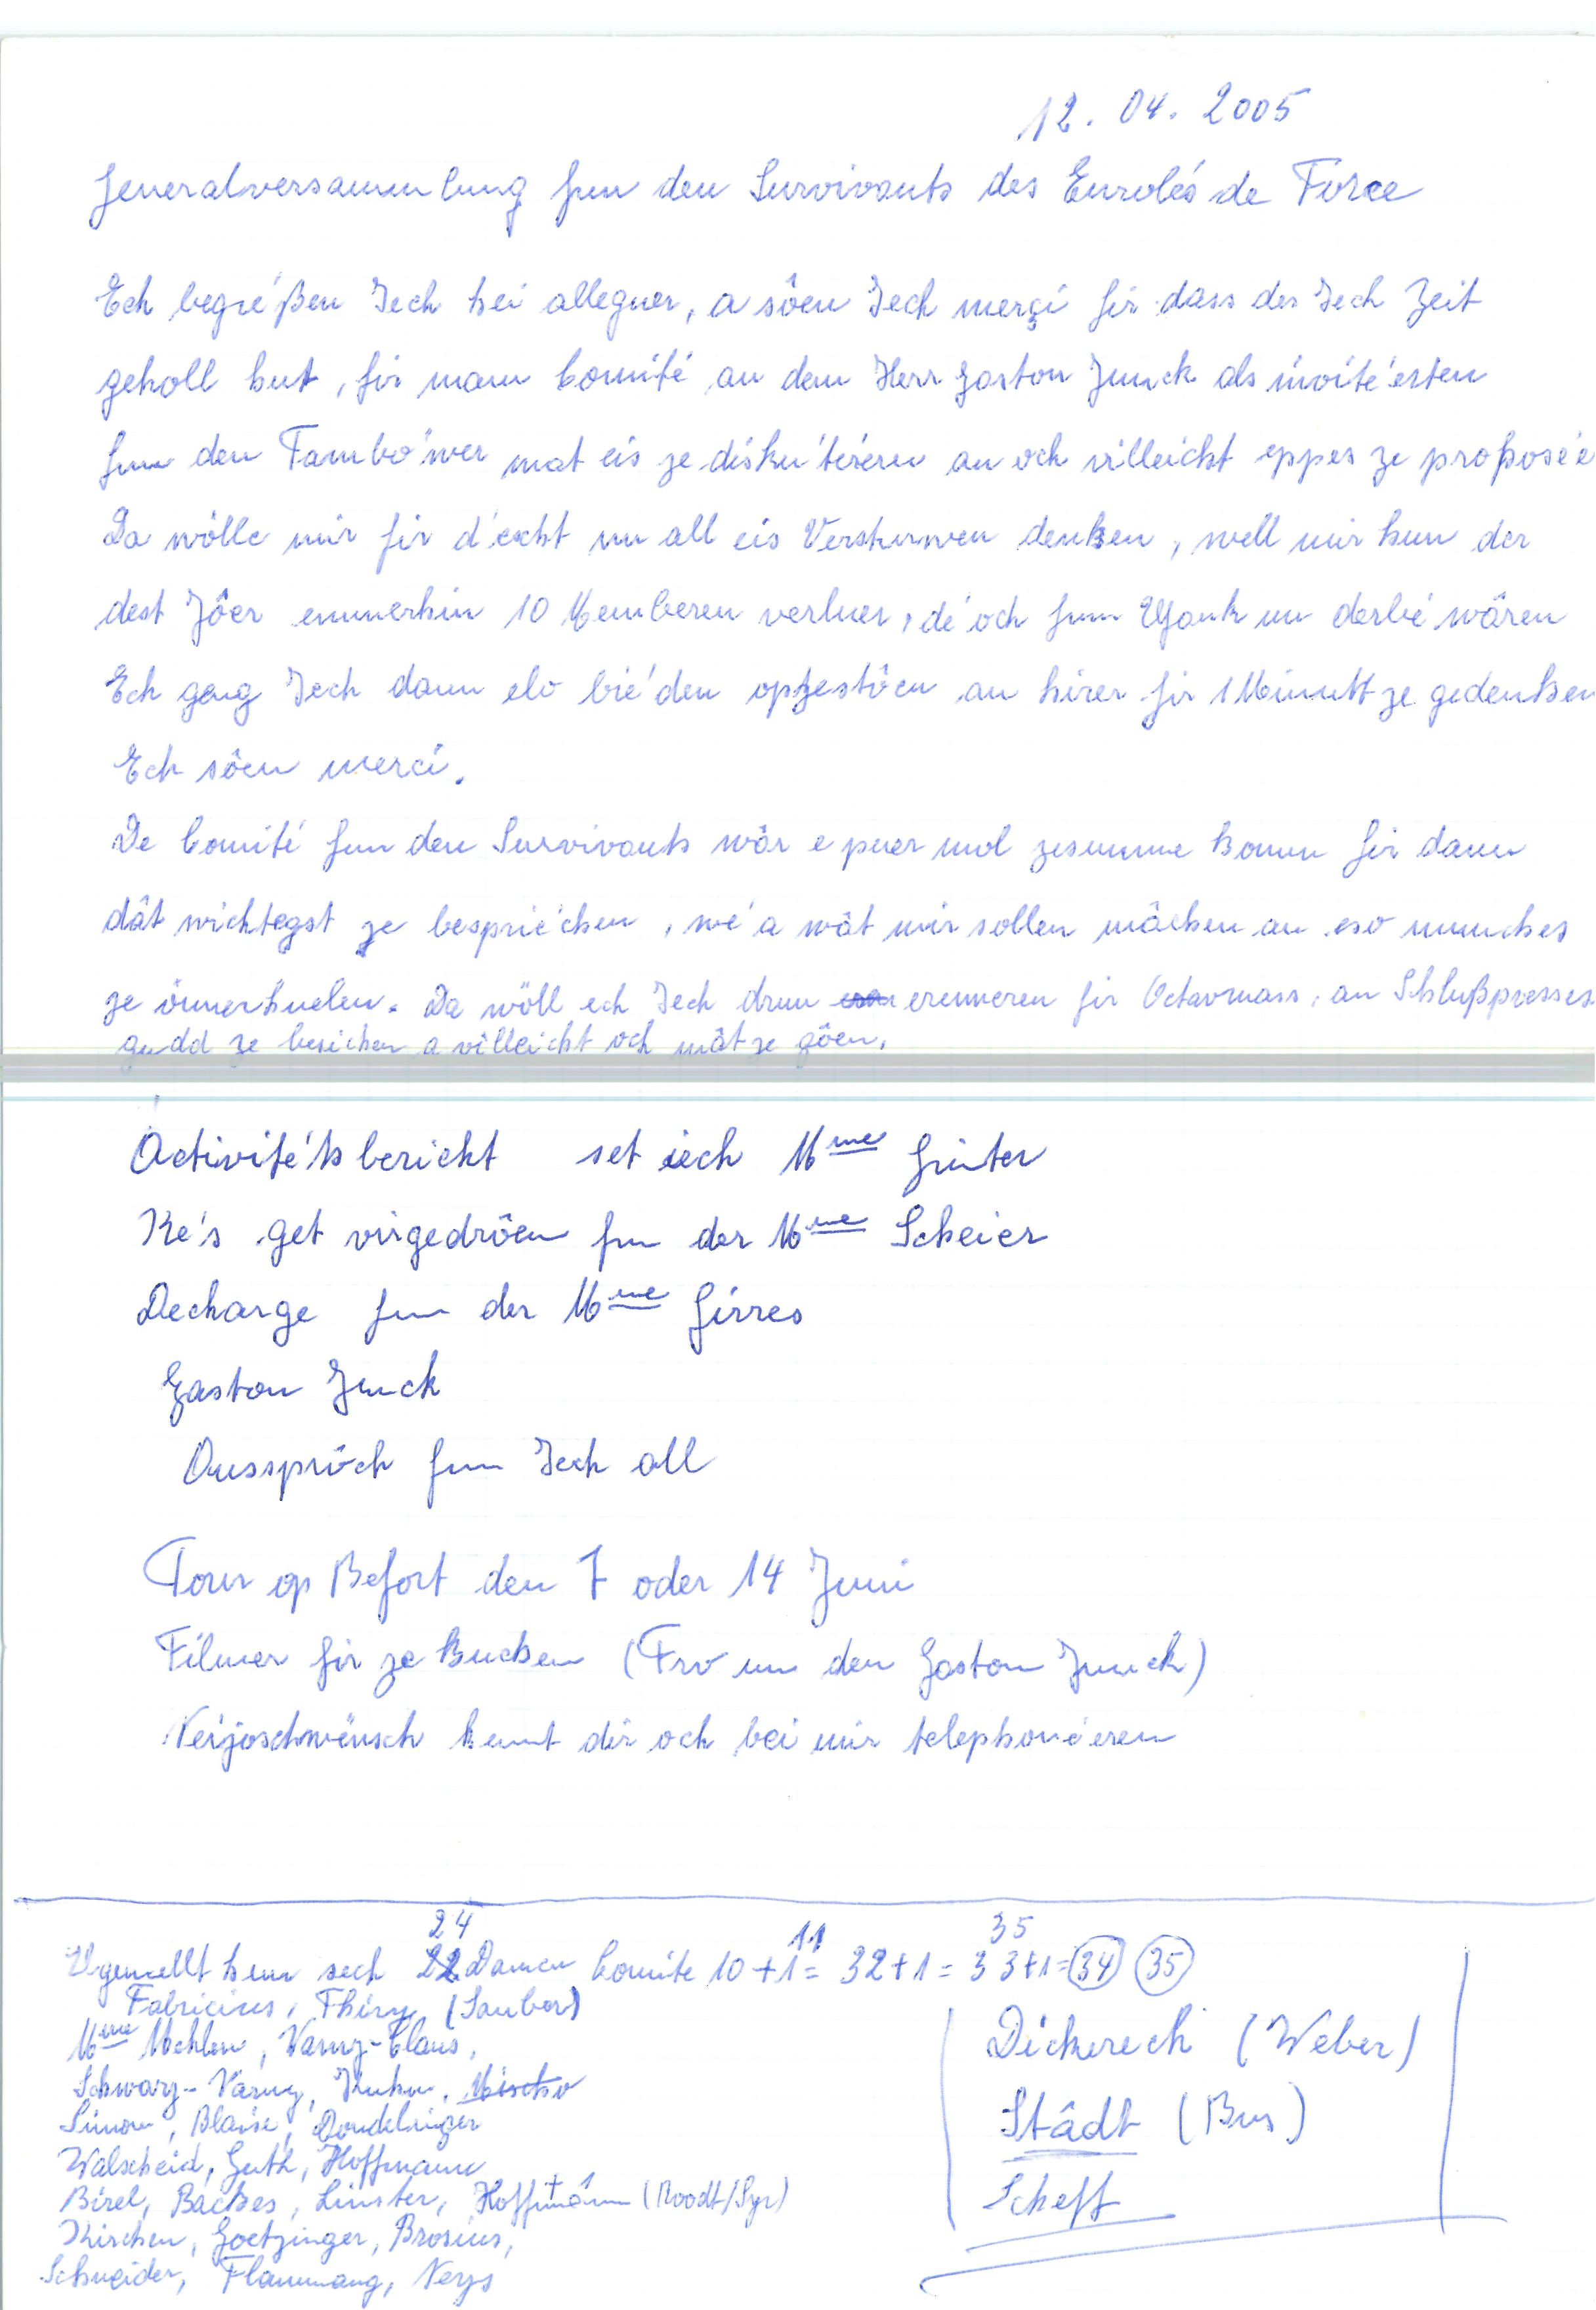 12. 04. 2005
Generalversammlung fun den Survivants des Enrolés de Force
Ech begréßen Iech hei alleguer, a sôen Iech merçi fir dass der Iech Zeit
geholl hut, fir mam Comité an dem Herr Gaston Junck als invitéerten
fun den Tambówer mat eis ze diskutéieren an och villeicht eppes ze proposée
Da wölle mir fir d'éischt un all eis Verstuerwen denken, well mir hun der
dest Jôer emmerhin 10 Memberen verluer, dé och fum Ufank un derbé wâren
Ech geng Iech dann elo biéden opzestôen an hirer fir 1 Minutt ze gedenken
Ech sôen merci.
De Comité fun den Survivants wâr e puer mol zesumme komm fir dann
dât wichtegst ze bespriéchen, wé a wât mir sollen mâchen an eso munches
ze ënnerhuelen. Da wöll ech Iech drun erënneren fir Octavmass, an Schlußprozes
gudd ze besichen a villeicht och mât ze gôen.
Activitétsbericht set iech Mme Grüter
Ké's get virgedrôen fun der Mme Scheier
Decharge fun der Mme Girres
Gaston Junck
Ousspröch fun Iech all
Tour op Befort den 7 oder 14 Juni
Filmer fir ze kucken (Fro un den Gaston Junck)
Néijoschwënsch kennt dir och bei mir telephonéeren
24 11 35
Ugemellt hun sech 22 Damen Comite 10 + 1 = 32 + 1 = 33 + 1 = 34 35
Fabricius, Thiry (Sauber)
Mme Mehlen, Varny-Claus,
Schwarz-Varny, Kuhn, Mischo
Simon, Blaise, Dondelinger
Walscheid, Guth, Hoffmann
Birel, Backes, Linster, Hoffmann + 1 (Roodt/Syr)
Kirchen, Goetzinger, Brosius,
Schneider, Flammang, Neys
Dickerech (Weber)
Stâdt (Bus)
Scheff